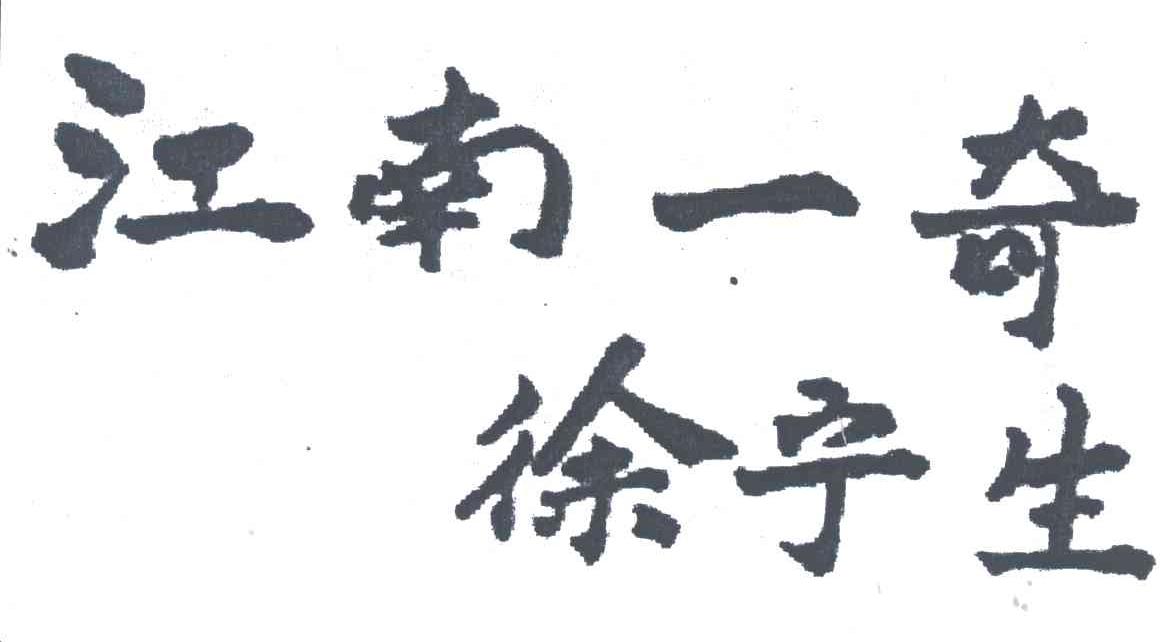 江南一奇
徐宁生